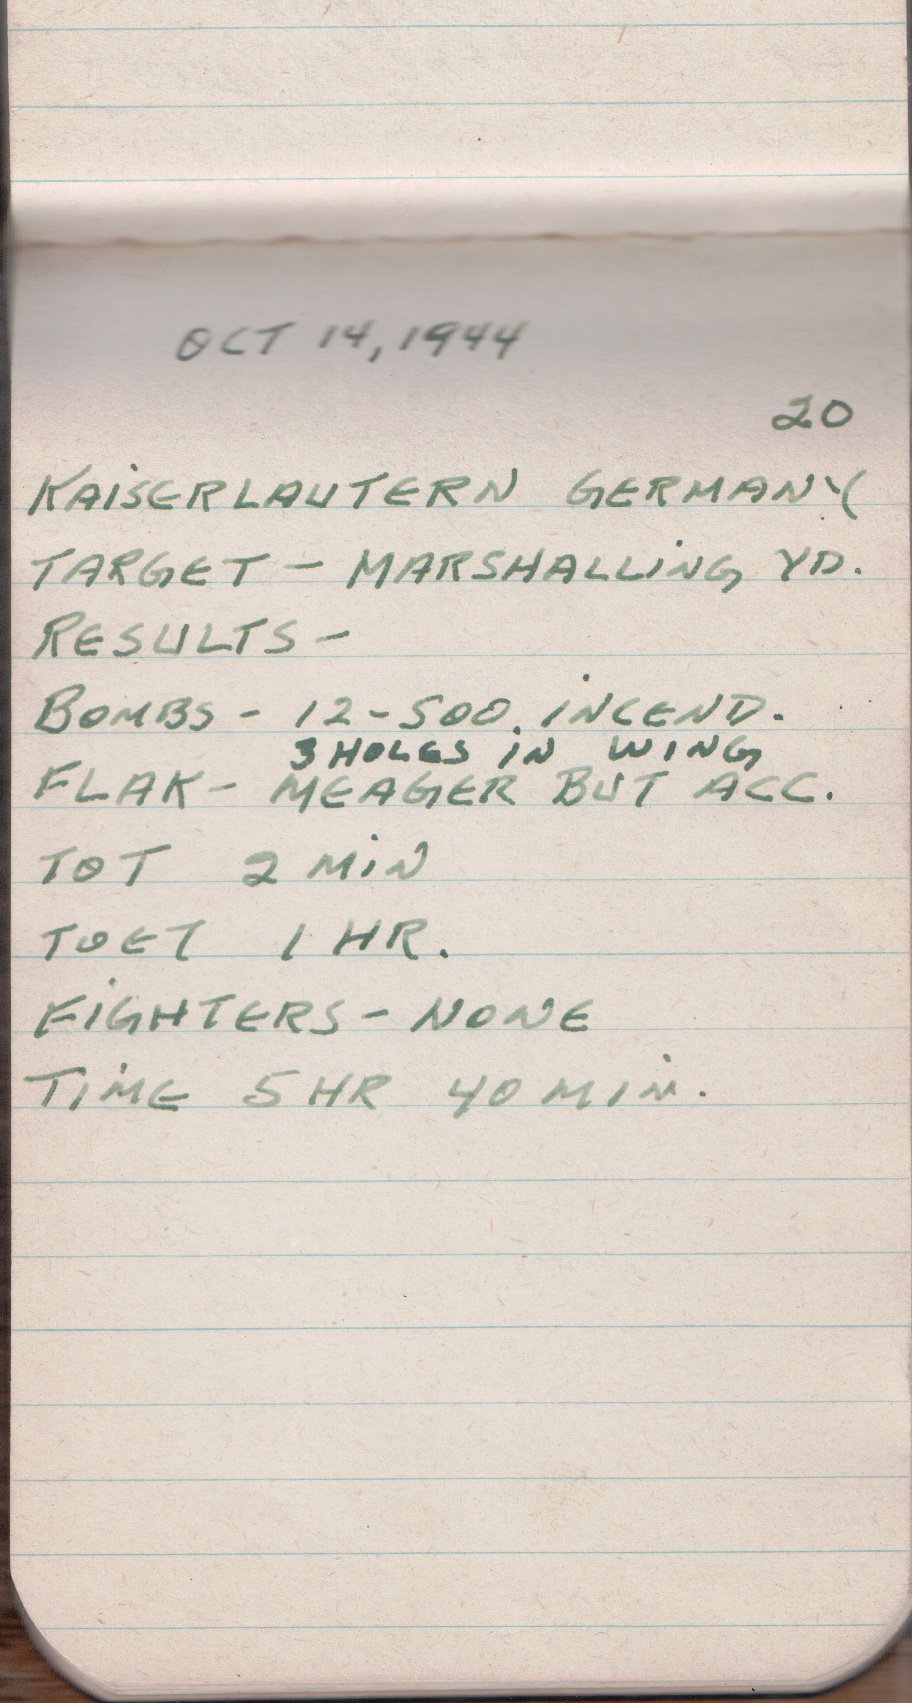 OCT 14, 1944
20
KAiSERLAUTERN GERMANY
TARGET - MARSHALLiNG YD.
RESULTS -
BOMBS - 12-500 iNCEND.
3 HOLES iN WING
FLAK - MEAGER BUT ACC.
TOT 2 MiN
TOET 1 HR.
FiGHTERS - NONE
TiME 5 HR 40 MiN.